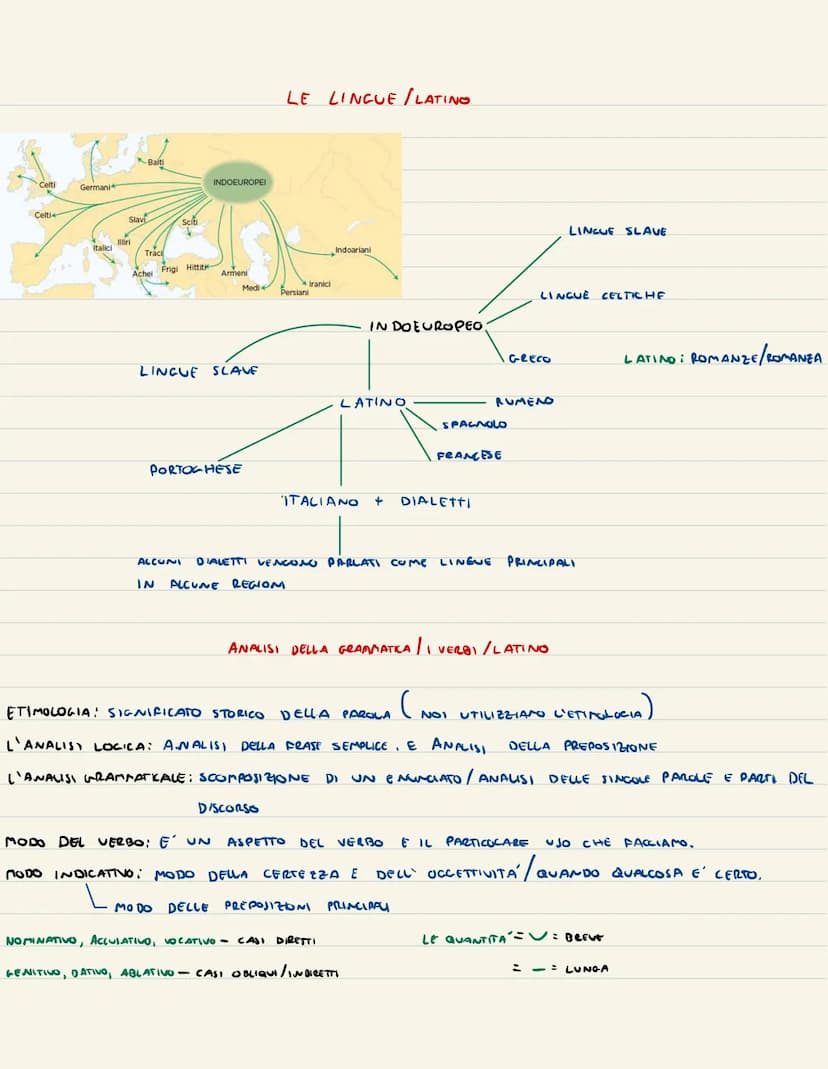 LE LINGUE/LATINO
Balti
INDOEUROPEI
Celti
Germani
Celti
Slavi
Sciti
Italici
Illiri
Traci
Indoariani
Achei
Frigi
Hittiti
Armeni
Medi
Persiani
Iranici
LINGUE SLAVE
LINGUE CELTICHE
INDOEUROPEO
GRECO
LATINO: ROMANZE/ROMANZA
LINGUE SLAVE
LATINO
RUMENO
SPAGNOLO
FRANCESE
PORTOGHESE
ITALIANO + DIALETTI
ALCUNI DIALETTI VENGONO PARLATI COME LINGUE PRINCIPALI
IN ALCUNE REGIONI
ANALISI DELLA GRAMMATICA/I VERBI/LATINO
ETIMOLOGIA: SIGNIFICATO STORICO DELLA PAROLA (NOI UTILIZZIAMO L'ETIMOLOGIA)
L'ANALISI LOGICA: ANALISI DELLA FRASE SEMPLICE. E ANALISI DELLA PREPOSIZIONE
L'ANALISI GRAMMATICALE: SCOMPOSIZIONE DI UN ENUNCIATO/ANALISI DELLE SINGOLE PAROLE E PARTI DEL
DISCORSO
MODO DEL VERBO: E' UN ASPETTO DEL VERBO E IL PARTICOLARE USO CHE FACCIAMO.
MODO INDICATIVO: MODO DELLA CERTEZZA E DELL' OGGETTIVITA'/QUANDO QUALCOSA E' CERTO.
MODO DELLE PREPOSIZIONI PRINCIPALI
NOMINATIVO, ACCUSATIVO, VOCATIVO - CASI DIRETTI
LE QUANTITA' = ∪ = BREVE
GENITIVO, DATIVO, ABLATIVO - CASI OBLIQUI/INDIRETTI
= — = LUNGA